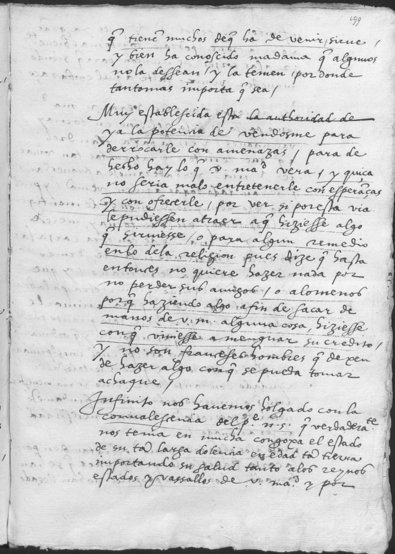 199
q̄ tienē muchos deq̄ ha de venir, sirue /
y bien ha conoscido madama q̄ algunos
no la dessean / y la temen / por donde
tantomas importa q̄ sea /
Muy establescida esta la authoridad de
ya la potencia de Vendosme para
derrocarle con amenazas / para de
hecho hay lo q̄ v. ma.d vera / y quiça
no seria malo entretenerle con esperāças
y con ofrecerle / por ver si por esta via
le pudiessen atraer a q̄ hiziesse algo
q̄ siruiesse, o para algun remedio
en lo dela religion pues dize q̄ hasta
entonces no quiere hazer nada por
no perder sus amigos / o alomenos
porq̄ haziendo algo a fin de sacar de
manos de v. m. alguna cosa, hiziesse
con q̄ viniesse a menguar su credito /
y no son franceses hombres q̄ dexen
de hazer algo con q̄ se pueda tomar
achaque /
Infinito nos hauemos holgado con la
conualescencia del p.e n. s. q̄ verdadera.te
nos tenia en mucha congoxa el estado
de su tā larga dolencia en edad tā tierna
importando su salud tanto alos reynos
estados y vassallos de v. ma.d y por